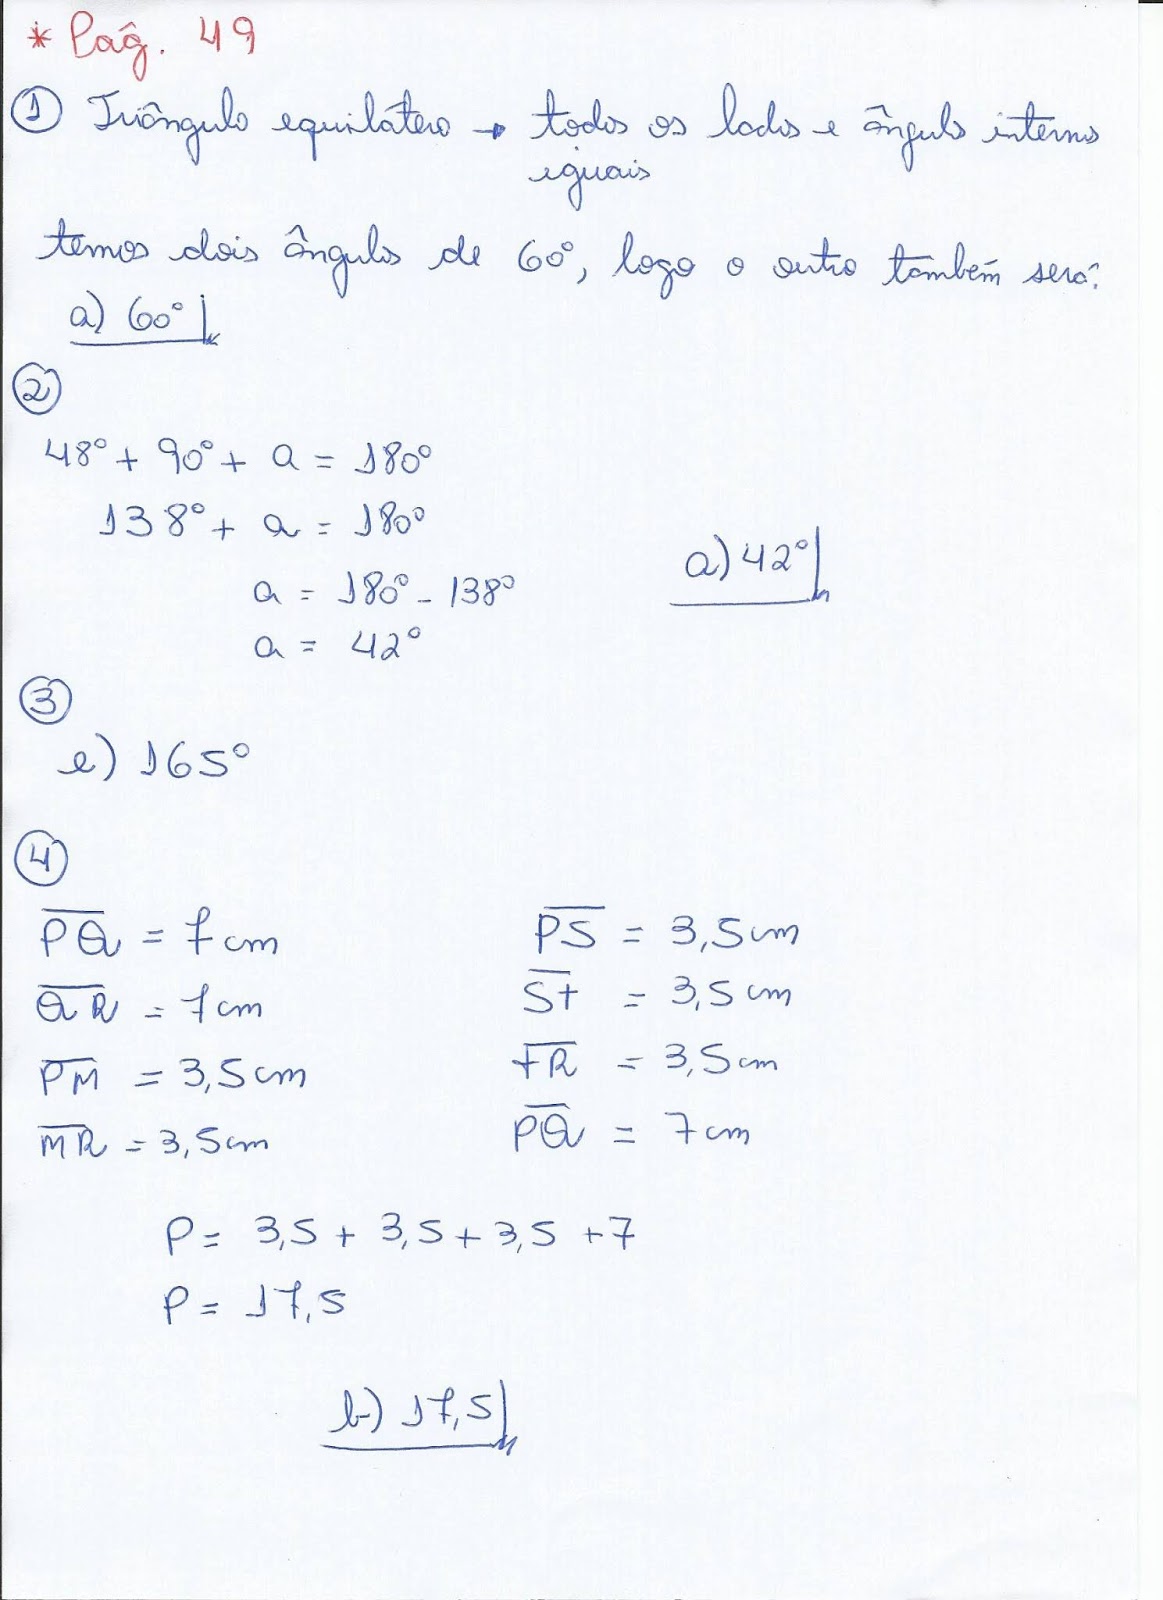 * Pág. 49
① Triângulo equilátero → todos os lados e ângulo interno
iguais
temos dois ângulos de 60°, logo o outro também será:
a) 60°
②
48° + 90° + a = 180°
138° + a = 180°
a = 180° - 138°
a = 42°
a) 42°
③
e) 165°
④
PQ = 7cm
QR = 7cm
PM = 3,5cm
MR = 3,5cm
PS = 3,5cm
ST = 3,5cm
TR = 3,5cm
PQ = 7cm
P = 3,5 + 3,5 + 3,5 + 7
P = 17,5
b) 17,5